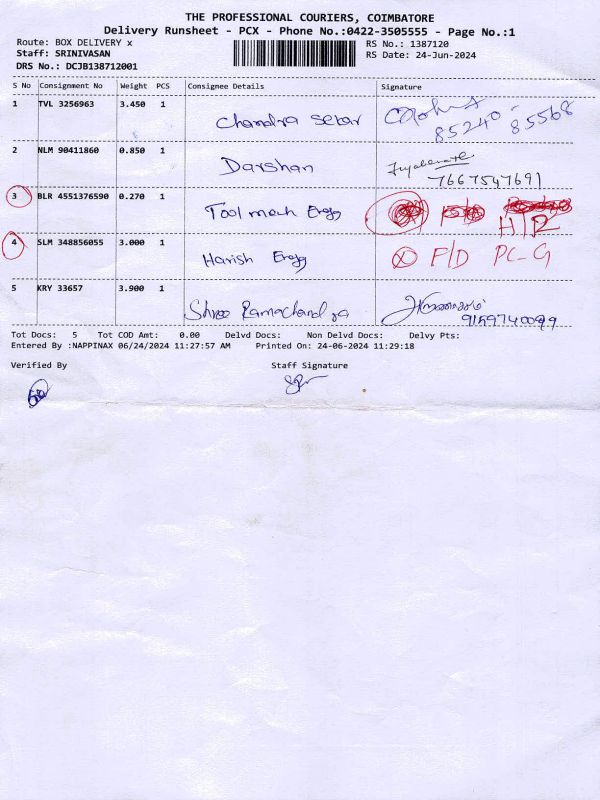 THE PROFESSIONAL COURIERS, COIMBATORE
Delivery Runsheet - PCX - Phone No.:0422-3505555 - Page No.:1
Route: BOX DELIVERY x RS No.: 1387120
Staff: SRINIVASAN RS Date: 24-Jun-2024
DRS No.: DCJB138712001
S No Consignment No Weight PCS Consignee Details Signature
1 TVL 3256963 3.450 1 Chandra Setar
85240-85568
2 NLM 90411860 0.850 1 Darshan
7667547691
3 BLR 4551376590 0.270 1 Tool mech Engg H/R
4 SLM 348856055 3.000 1 Harish Engg X F/D PC-G
5 KRY 33657 3.900 1 Shree Ramachandra
9159740099
Tot Docs: 5 Tot COD Amt: 0.00 Delvd Docs: Non Delvd Docs: Delvy Pts:
Entered By :NAPPINAX 06/24/2024 11:27:57 AM Printed On: 24-06-2024 11:29:18
Verified By Staff Signature